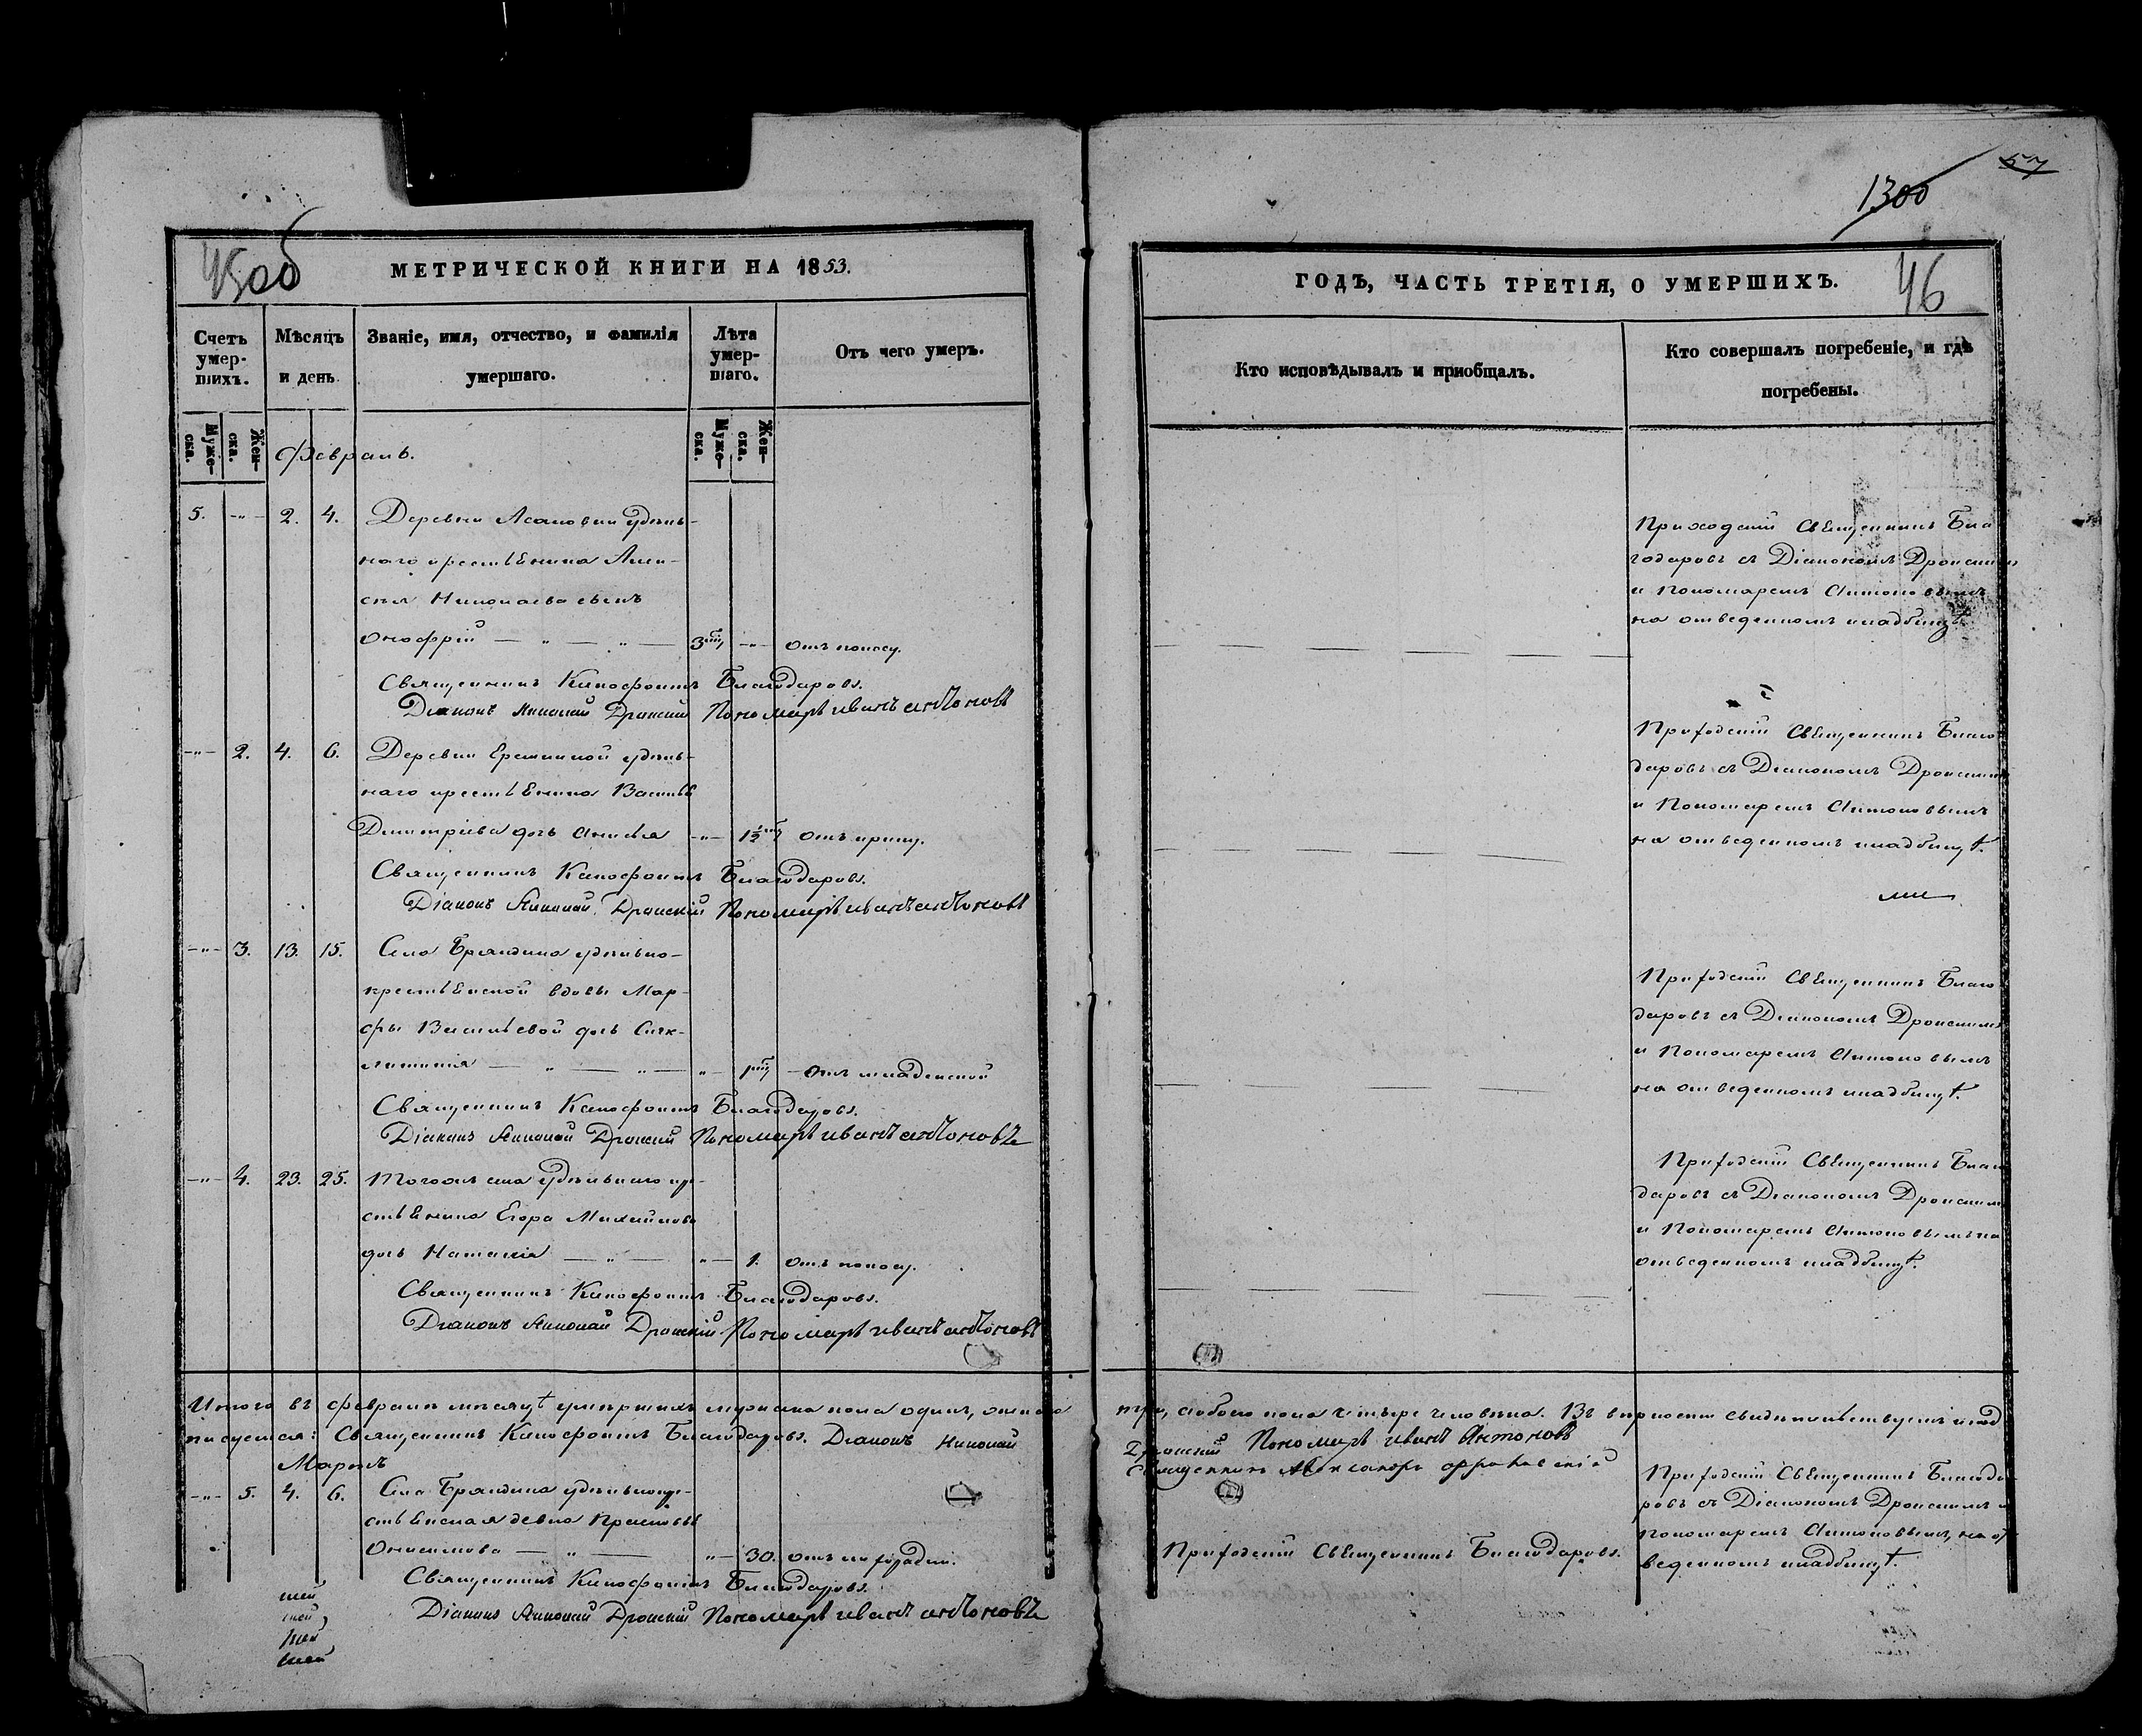 45об
МЕТРИЧЕСКОЙ КНИГИ НА 1853.
Счетъ умер-
шихъ.
Мѣсяцъ
и день.
Званіе, имя, отчество, и фамилія
умершаго.
Лѣта
умер-
шаго.
Отъ чего умеръ.
Муже-
ска.
Жен-
ска.
Муже-
ска.
Жен-
ска.
Февраль.
5. -"- 2. 4. Деревни удѣль-
наго крестьянина Алек-
сѣя Николаева сынъ
Онофрій — " — " — 3 -"- отъ поносу.
Священникъ Ксенофонтъ Благодаровъ.
Діаконъ Николай Дронскій Пономарь Иванъ Антоновъ
-"- 2. 4. 6. Деревни Еремкиной удѣль-
наго крестьянина Василья
Димитріева дочь Анисья -"- 1½ отъ крику.
Священникъ Ксенофонтъ Благодаровъ.
Діаконъ Николай Дронскій Пономарь Иванъ Антоновъ
-"- 3. 13. 15. Села Бряндина удѣльно-
крестьянской вдовы Мар-
фы Васильевой дочь Синк-
литикія — " — " — " — отъ младенской
Священникъ Ксенофонтъ Благодаровъ.
Діаконъ Николай Дронскій Пономарь Иванъ Антоновъ
-"- 4. 23. 25. Тогожъ села удѣльнаго кр-
стьянина Егора Михайлова
дочь Наталія — " — " — 1. отъ поносу.
Священникъ Ксенофонтъ Благодаровъ.
Діаконъ Николай Дронскій Пономарь Иванъ Антоновъ
Итого въ февралѣ мѣсяцѣ умершихъ мужеска пола одинъ, женска
писуемся: Священникъ Ксенофонтъ Благодаровъ. Діаконъ Николай
Мартъ
-"- 5. 4. 6. Села Бряндина удѣльнокре-
стьянская девка Прасковья
Онисимова — " — " — 30. отъ лихорадки.
Священникъ Ксенофонтъ Благодаровъ
Діаконъ Николай Дронскій Пономарь Иванъ Антоновъ
1300
57
ГОДЪ, ЧАСТЬ ТРЕТІЯ, О УМЕРШИХЪ.
46
Кто исповѣдывалъ и пріобщалъ.
Кто совершалъ погребеніе, и гдѣ
погребены.
Приходскій Священникъ Бла
годаровъ съ Діакономъ Дронскимъ
и Пономаремъ Антоновымъ
на отведенномъ кладбищѣ.
Приходскій Священникъ Благо
даровъ съ Діакономъ Дронскимъ
и Пономаремъ Антоновымъ
на отведенномъ кладбищѣ.
Приходскій Священникъ Благо
даровъ съ Діакономъ Дронскимъ
и Пономаремъ Антоновымъ
на отведенномъ кладбищѣ.
Приходскій Священникъ Благо
даровъ съ Діакономъ Дронскимъ
и Пономаремъ Антоновымъ на
отведенномъ кладбищѣ.
три, обоего пола четыре человѣка. Въ вѣрности свидѣтельствуемъ и под
Дронскій Пономарь Иванъ Антоновъ
Священникъ Александръ
Приходскій Священникъ Благодаровъ.
Приходскій Священникъ Благода
ровъ съ Діакономъ Дронскимъ и
пономаремъ Антоновымъ, на от
веденномъ кладбищѣ.